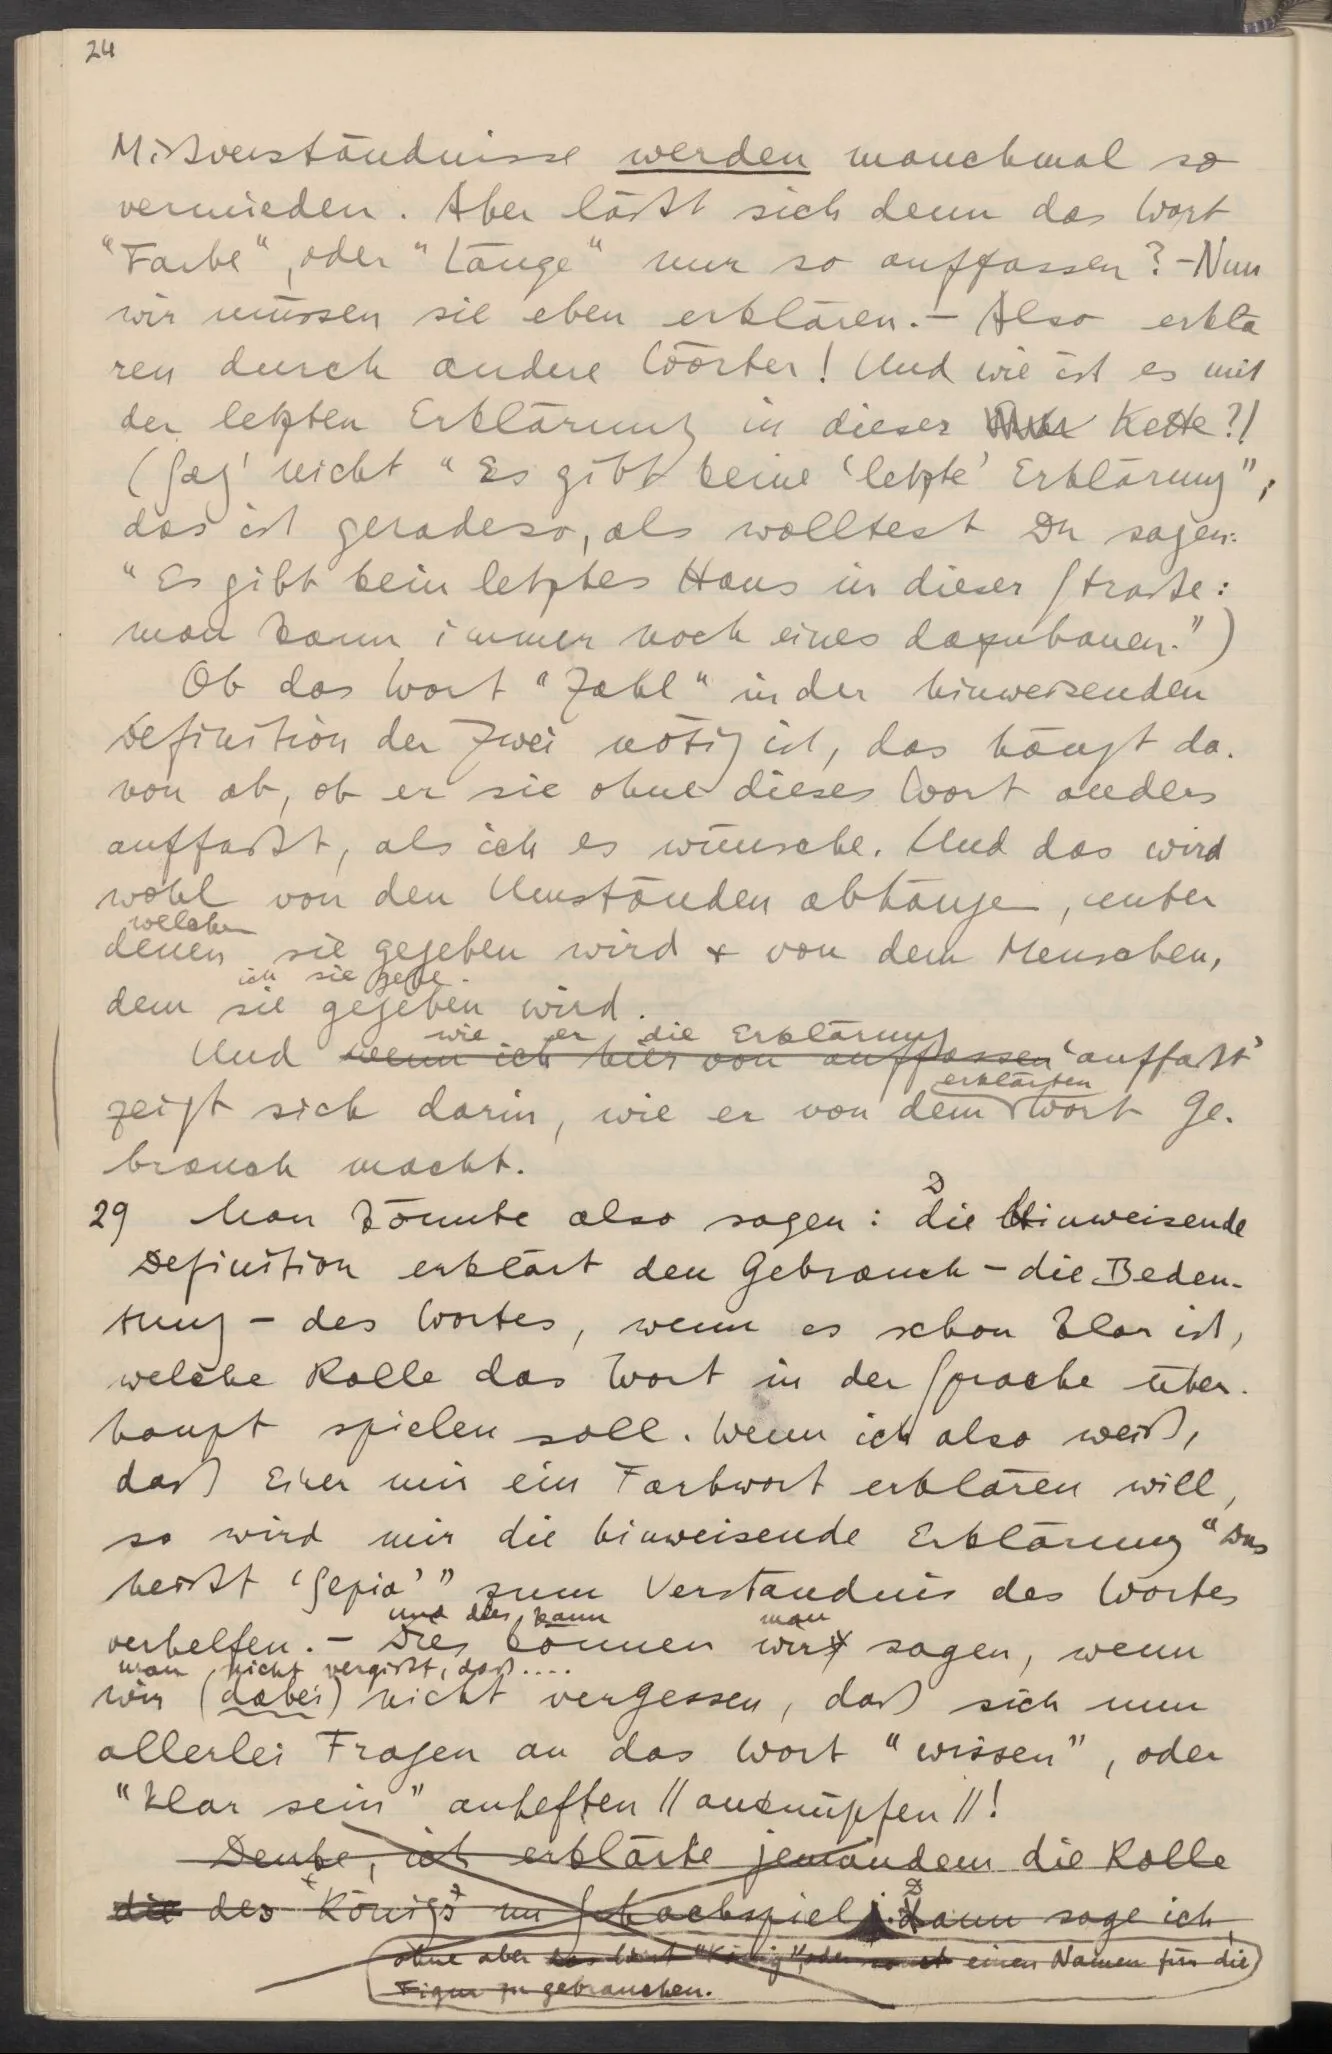 24
Mißverständnisse werden manchmal so
vermieden. Aber läßt sich denn das Wort
"Farbe", oder "Länge" nur so auffassen? – Nun
wir müssen sie eben erklären. – Also erklä
ren durch andere Wörter! Und wie ist es mit
der letzten Erklärung in dieser Kette?!
(Sag' nicht "Es gibt keine 'letzte' Erklärung",
das ist geradeso, als wolltest Du sagen:
"Es gibt kein letztes Haus in dieser Straße:
man kann immer noch eines dazubauen.")
Ob das Wort "Zahl" in der hinweisenden
Definition der Zwei nötig ist, das hängt da-
von ab, ob er sie ohne dieses Wort anders
auffaßt, als ich es wünsche. Und das wird
wohl von den Umständen abhängen, unter
welchen
denen sie gegeben wird & von dem Menschen,
ich sie gebe.
dem sie gegeben wird.
wie er die Erklärung
Und wenn ich hier von auffassen 'auffaßt'
erklärten
zeigt sich darin, wie er von dem Wort Ge-
brauch macht.
29 Man könnte also sagen: Die Hinweisende
Definition erklärt den Gebrauch – die Bedeu-
tung – des Wortes, wenn es schon klar ist,
welche Rolle das Wort in der Sprache über-
haupt spielen soll. Wenn ich also weiß,
daß Einer mir ein Farbwort erklären will,
so wird mir die hinweisende Erklärung "Das
heißt 'Sepia'" zum Verständnis des Wortes
und dies kann man
verhelfen. – Dies können wir sagen, wenn
man nicht vergißt, daß ....
wir (dabei) nicht vergessen, daß sich nun
allerlei Fragen an das Wort "wissen", oder
"klar sein" anheften // anknüpfen //!
Denke, ich erklärte jemandem die Rolle
die des Königs im Schachspiel. Dann sage ich
ohne aber das Wort "König", oder sonst einen Namen für die
Figur zu gebrauchen.